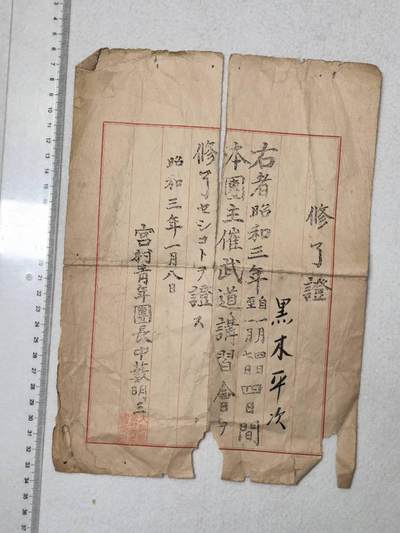 修了證
黒木平次
右者昭和三年自一月四日至一月七日四日間
本團主催武道講習會ヲ
修了セシコトヲ證ス
昭和三年一月八日
宮村青年團長中薮明三